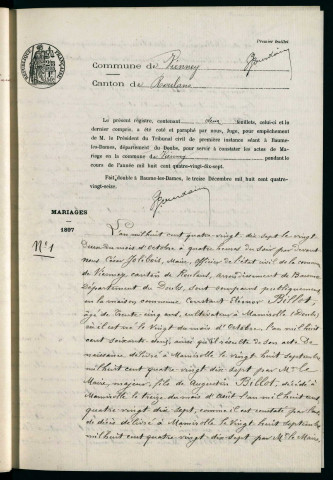 Premier feuillet
Commune de Vienney
Canton de Roulans
Le présent régistre, contenant deux feuillets, celui-ci et le
dernier compris, a été coté et paraphé par nous, Juge, pour empêchement
de M. le Président du Tribunal civil de première instance séant à Baume-
les-Dames, département du Doubs, pour servir à consister les actes de Ma-
riage en la commune de Vienney pendant le
cours de l'année mil huit cent quatre-vingt-dix-sept.
Fait double à Baume-les-Dames, le treize Décembre mil huit cent quatre-
vingt-seize.
MARIAGES
1897
N° 1
L'an mil huit cent quatre vingt dix sept le vingt
deux du mois d'octobre à quatre heures du soir par devant
nous César Jolibois, Maire, officier de l'état civil de la commune
de Vienney canton de Roulans, arrondissement de Baume
Département du Doubs, sont comparus publiquement
en la maison commune Constant Eléonor Billot,
âgé de Trente cinq ans, cultivateur à Mamirolle (Doubs)
où il est né le Vingt du mois d'Octobre l'an mil huit
cent soixante deux, ainsi qu'il résulte de son acte De
naissance délivré à Mamirolle le vingt huit septembre
mil huit cent quatre vingt dix sept par Mr le
Maire, majeur, fils de Augustin Billot, décédé à
Mamirolle le treize du mois d'Août l'an mil huit cent
quatre vingt dix sept, comme il est constaté par l'acte
de décès délivré à Mamirolle le vingt huit septembre
mil huit cent quatre vingt dix sept par Mr le Maire,